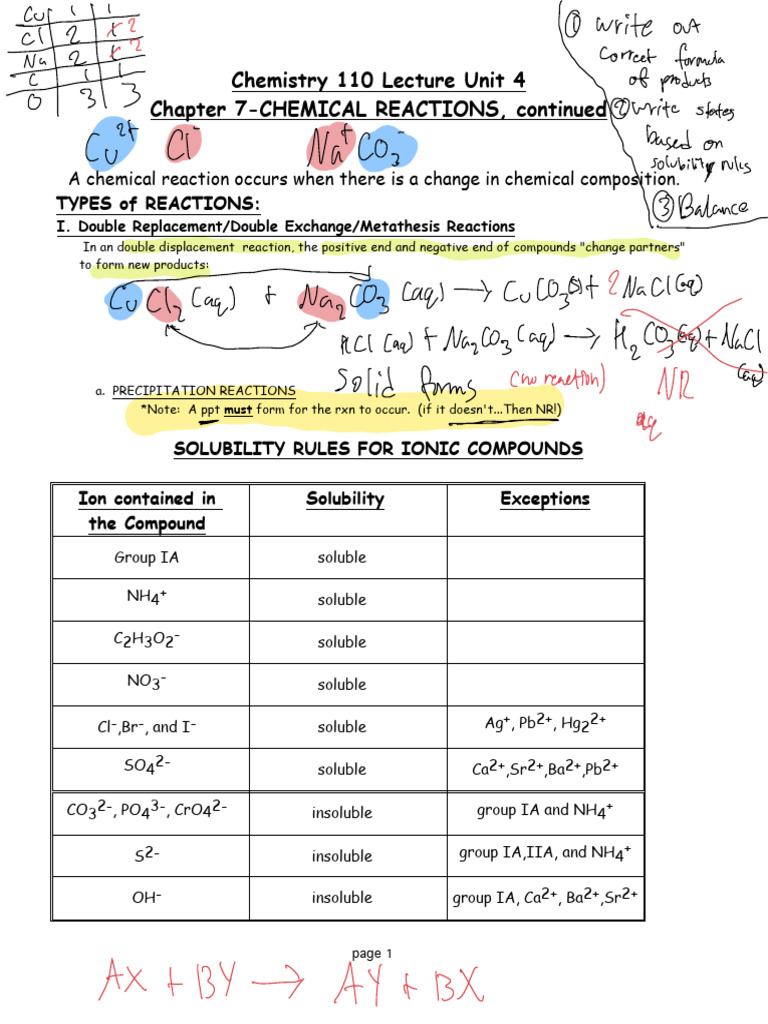 Cu 1 1
Cl 2 1 2
Na 2 1 2
C 1 1
O 3 3
① write out
correct formula
of products
② write states
based on
solubility rules
③ Balance
Chemistry 110 Lecture Unit 4
Chapter 7-CHEMICAL REACTIONS, continued
Cu²⁺ Cl⁻ Na⁺ CO₃⁻
A chemical reaction occurs when there is a change in chemical composition.
TYPES of REACTIONS:
I. Double Replacement/Double Exchange/Metathesis Reactions
In an double displacement reaction, the positive end and negative end of compounds "change partners"
to form new products:
CuCl₂ (aq) + Na₂CO₃ (aq) → CuCO₃(s) + 2NaCl(aq)
HCl (aq) + Na₂CO₃ (aq) → H₂CO₃(aq) + NaCl (aq)
Solid forms (no reaction) NR
a. PRECIPITATION REACTIONS
*Note: A ppt must form for the rxn to occur. (if it doesn't...Then NR!)
aq
SOLUBILITY RULES FOR IONIC COMPOUNDS
Ion contained in the Compound Solubility Exceptions
Group IA soluble
NH₄⁺ soluble
C₂H₃O₂⁻ soluble
NO₃⁻ soluble
Cl⁻,Br⁻, and I⁻ soluble Ag⁺, Pb²⁺, Hg₂²⁺
SO₄²⁻ soluble Ca²⁺,Sr²⁺,Ba²⁺,Pb²⁺
CO₃²⁻, PO₄³⁻, CrO₄²⁻ insoluble group IA and NH₄⁺
S²⁻ insoluble group IA,IIA, and NH₄⁺
OH⁻ insoluble group IA, Ca²⁺, Ba²⁺,Sr²⁺
page 1
AX + BY → AY + BX